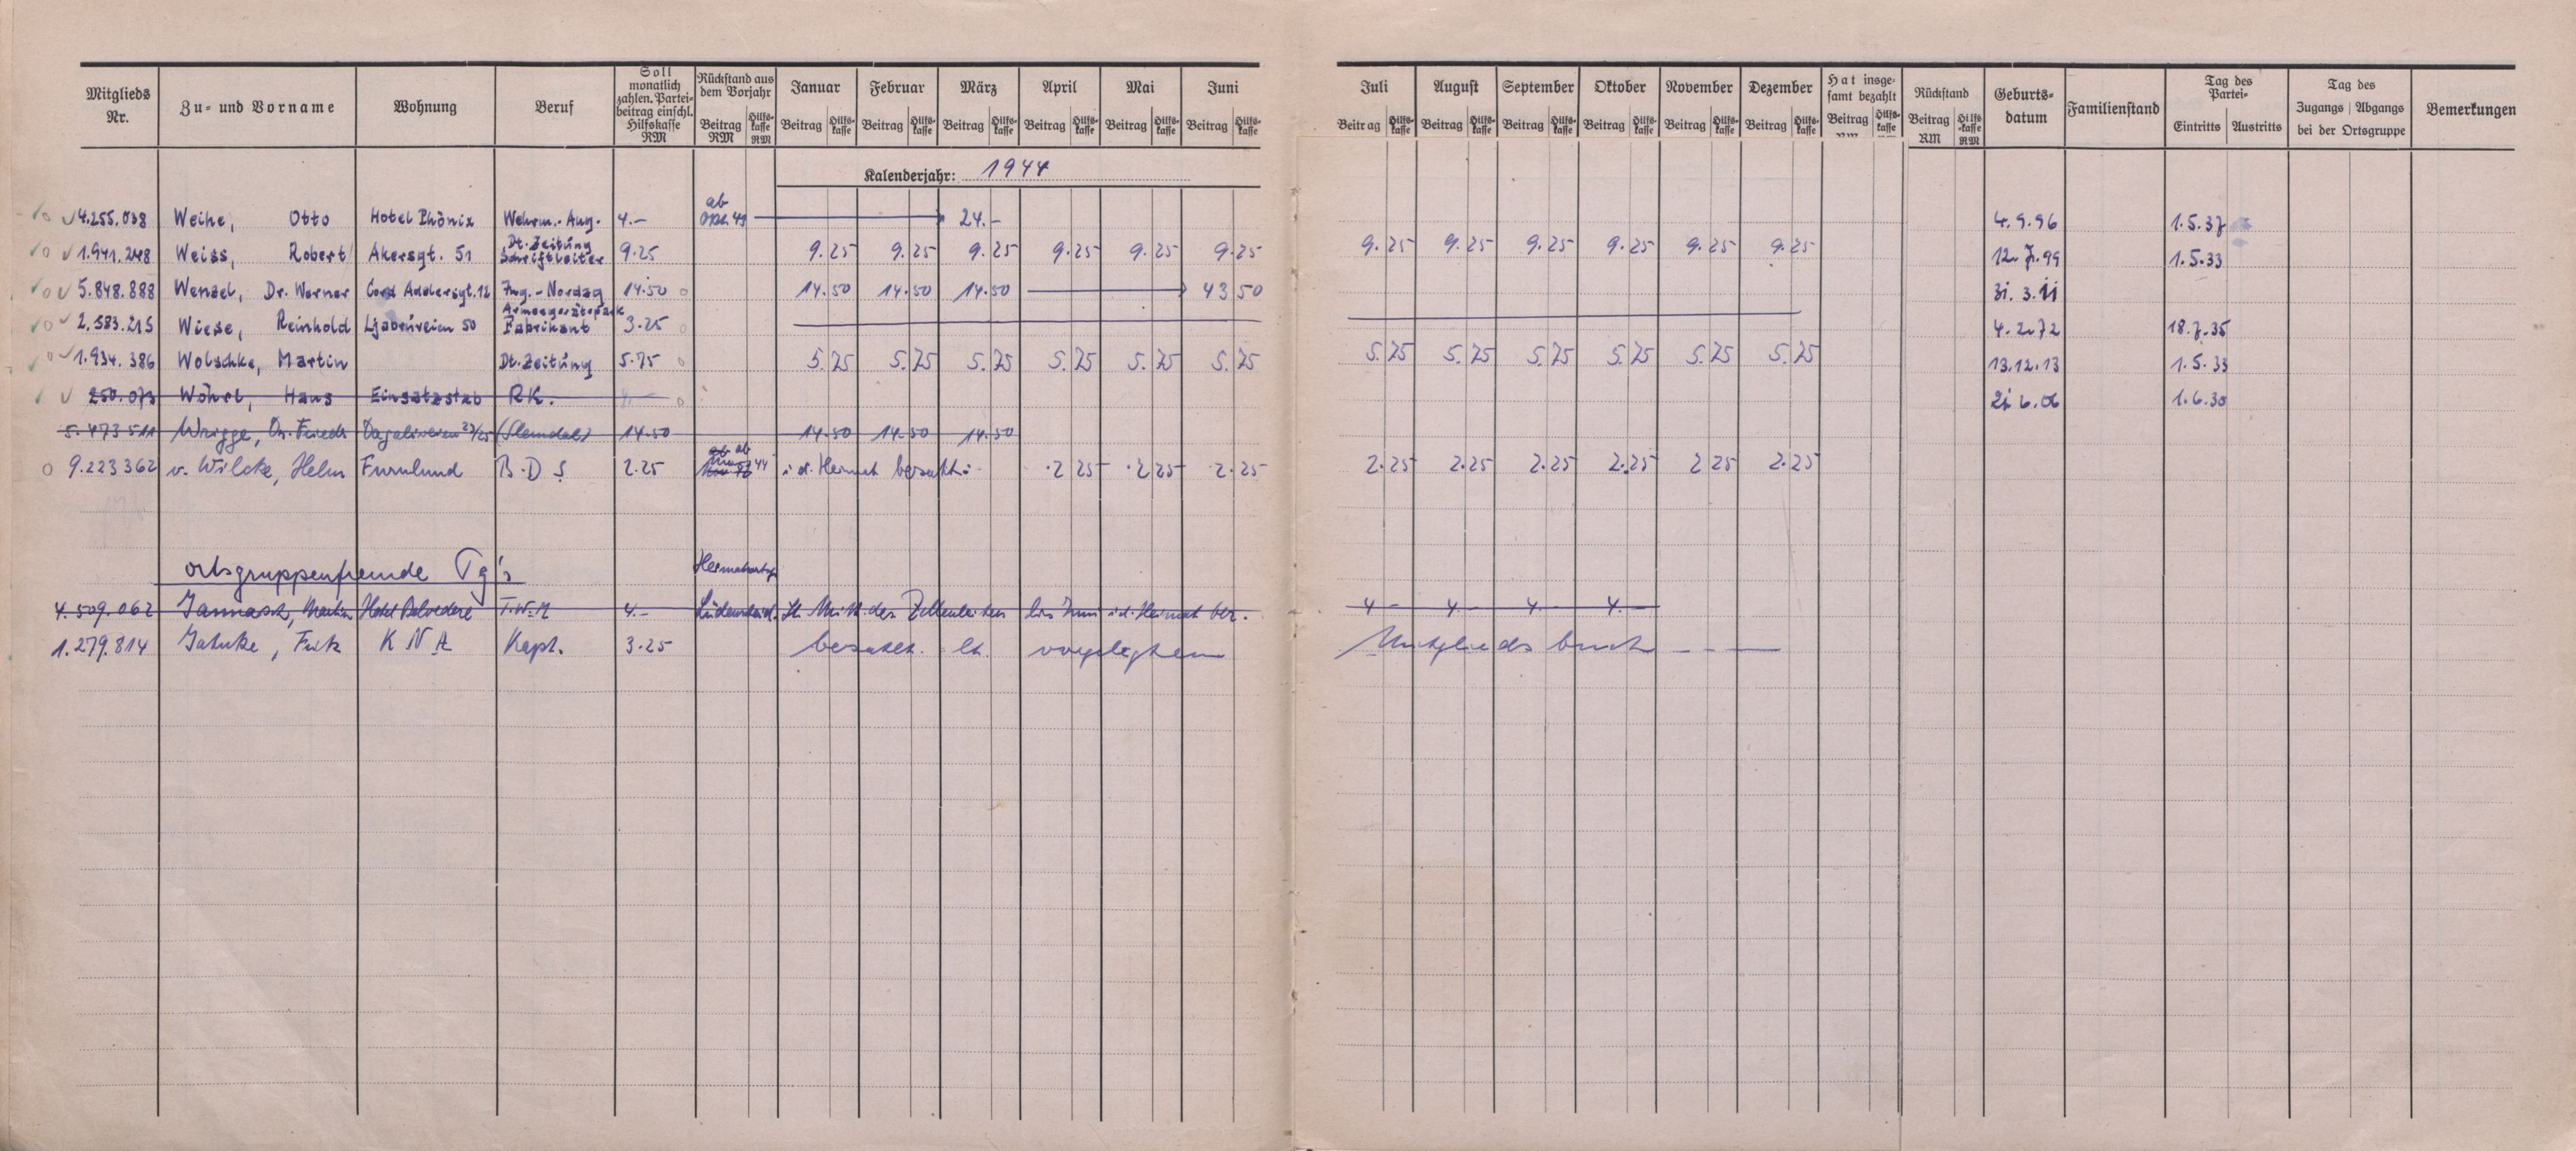 Mitglieds Nr. Zu- und Vorname Wohnung Beruf Soll monatlich zahlen. Parteibeitrag einschl. Hilfskasse RM Rückstand aus dem Vorjahr Beitrag RM Hilfskasse RM Januar Beitrag Hilfskasse Februar Beitrag Hilfskasse März Beitrag Hilfskasse April Beitrag Hilfskasse Mai Beitrag Hilfskasse Juni Beitrag Hilfskasse Juli Beitrag Hilfskasse August Beitrag Hilfskasse September Beitrag Hilfskasse Oktober Beitrag Hilfskasse November Beitrag Hilfskasse Dezember Beitrag Hilfskasse Hat insgesamt bezahlt Beitrag Hilfskasse Rückstand Beitrag RM Hilfskasse RM Geburtsdatum Familienstand Tag des Partei- Eintritts Austritts Tag des Zugangs Abgangs bei der Ortsgruppe Bemerkungen
Kalenderjahr: 1944
4.255.038 Weihe, Otto Hotel Phönix Wehrm.-Ang. 4.- ab 24.- 4.9.96 1.5.37
1.941.248 Weiss, Robert Akersgt. 51 Dt. Zeitung Schriftleiter 9.25 9.25 9.25 9.25 9.25 9.25 9.25 9.25 9.25 9.25 9.25 9.25 9.25 12.7.99 1.5.33
5.848.888 Wenzel, Dr. Werner Cord Addersgt. 12 Ing.-Nordag 14.50 14.50 14.50 14.50 43 50 31.3.11
2.583.215 Wiese, Reinhold Ljabruveien 50 Armeegerätepark Fabrikant 3.25 4.2.72 18.7.35
1.934.386 Wolschke, Martin Dt. Zeitung 5.75 5.75 5.75 5.75 5.75 5.75 5.75 5.75 5.75 5.75 5.75 5.75 5.75 13.12.13 1.5.33
250.073 Wöhrl, Hans Einsatzstab RK. 21.6.06 1.6.30
5.473511 Wrigge, Dr. Friedr. (Slemdal) 14.50 14.50 14.50 14.50
9.223362 v. Wilcke, Helm Furulund B.D.S 2.25 ab 44 i.d. Heimat bezahlt: 2 25 2 25 2.25 2.25 2.25 2.25 2.25 2 25 2.25
ortsgruppenfremde Pg's
4.509.062 Jannasch, Martin Hotel Belvedere T.W.M 4.- Lüdenscheid lt. Mitt. des Zellenleiters bis Juni i.d. Heimat bez. 4.- 4.- 4.- 4.-
1.279.814 Jahnke, Fritz K N A Kapt. 3.25 bezahlt lt. vorgelegtem Mitgliedsbuch - - -